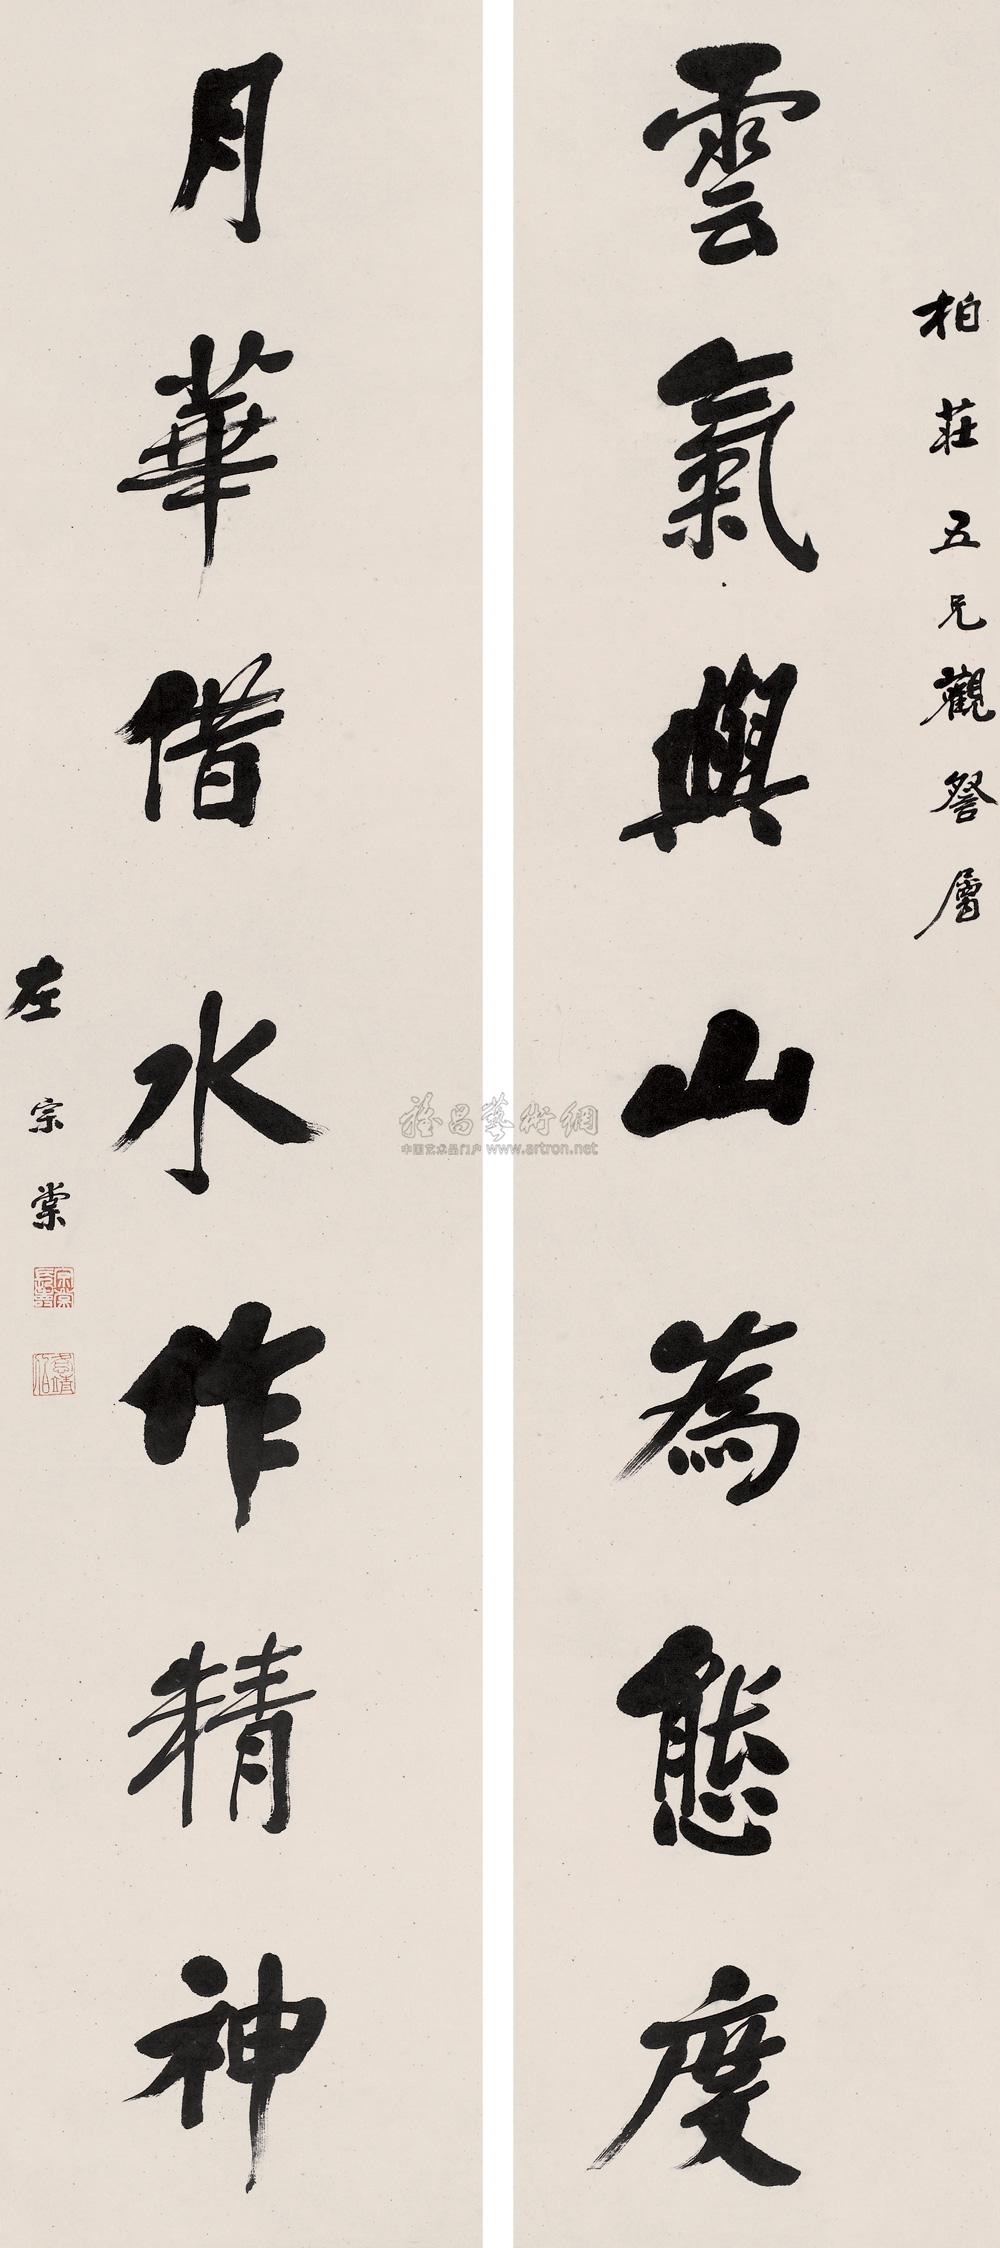 柏莊五兄觀詧屬
雲氣與山為態度
月華借水作精神
左宗棠
恪靖伯
雅昌藝術網
中国艺术品门户 www.artron.net